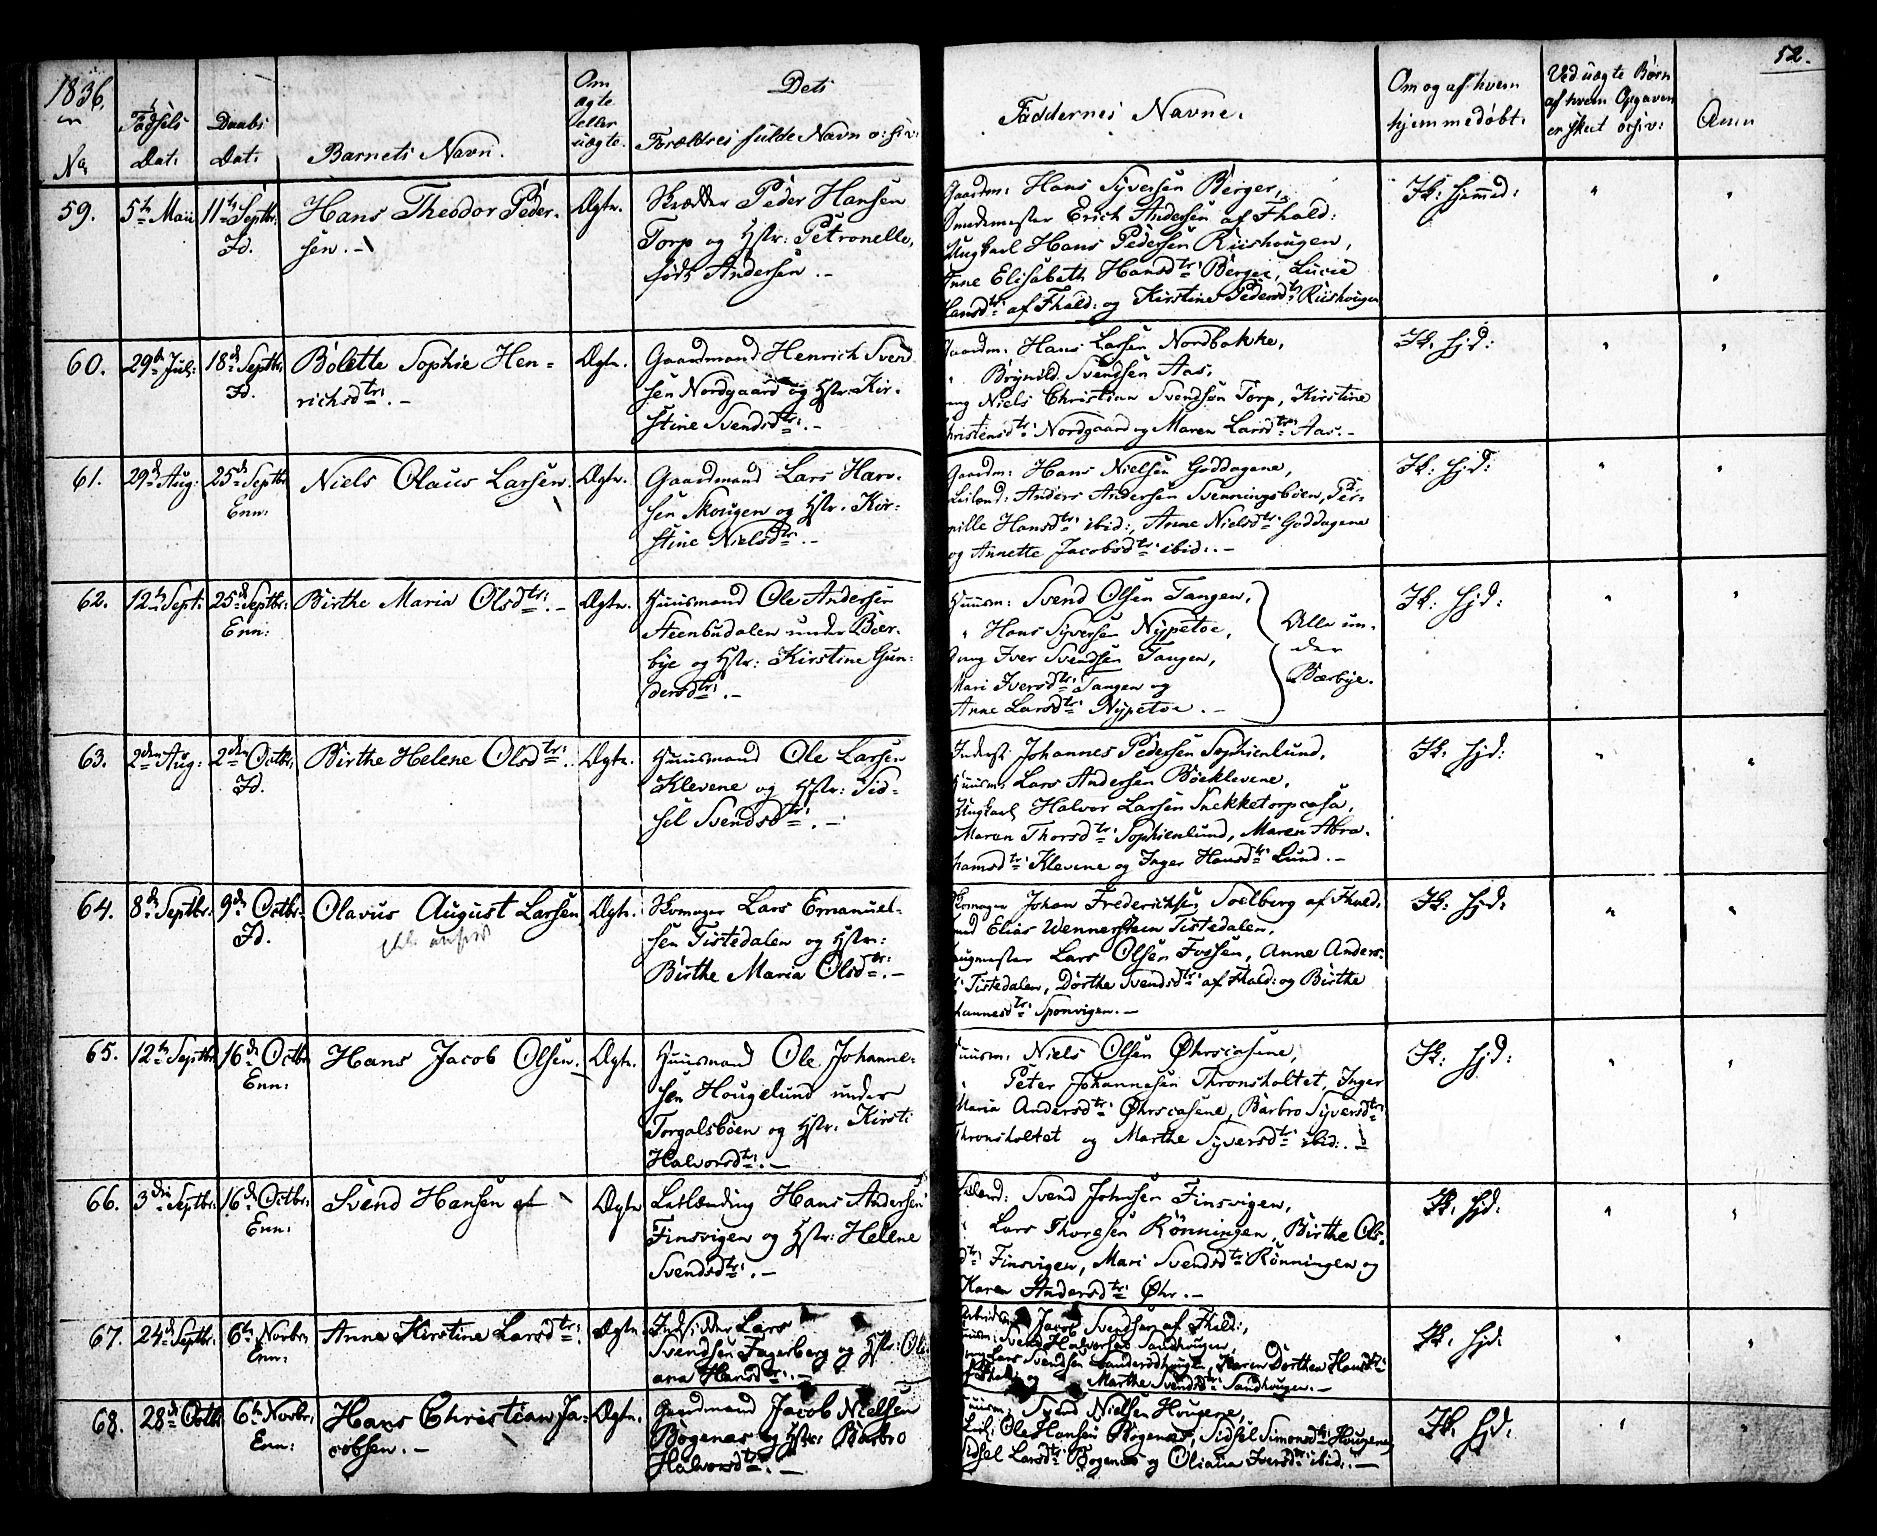 1836.
52.
No
Fødsels
Dat:
Daabs
Dat:
Barnets Navn.
Om
ægte
eller
uægte.
Dets
Forældres fulde Navn o: s: v:
Faddernes Navne.
Om og af hvem
hjemmedøbt.
Ved uægte Børn
af hvem Opgaven
er skeet o: s: v:
Anm
59.
5te Maii
11te Septbr:
Fd.
Hans Theodor Peder-
sen.-
Ægte.
Skrædder Peder Hansen
Torp og Hstr: Petronelle,
født Andersen.-
Gaardm: Hans Syversen Berger,
Smedemester Erich Andersen af Fhald:
Ungkarl Hans Pedersen Riishougen,
Anne Elisabeth Hansdtr: Berger, Lucie
Hansdtr: af Fhald: og Kirstine Pedersdtr: Riishougen
Ik: hjemmed:
60.
29de Jul:
18de Septbr:
Fd.
Bolette Sophie Hen-
richsdtr:.-
Ægte.
Gaardmand Henrich Svend-
sen Nordgaard og Hstr: Kir-
stine Svendsdtr:.-
Gaardm: Hans Larsen Nordbakke,
" Brynild Svendsen Aas,
ung Niels Christian Svendsen Torp, Kirstine
Christensdtr: Nordgaard og Maren Larsdtr: Aas.-
Ik. hjd:
61.
29de Aug:
25de Septbr
Enn:
Niels Olaus Larsen.
Ægte.
Gaardmand Lars Hans-
sen Skougen og Hstr. Kir-
stine Nielsdtr:.-
Gaardm: Hans Nielsen Goddagene,
Leilænd: Anders Andersen Svenningsbøen, Per-
nille Hansdtr: ibid:, Anne Nielsdtr: Goddagene
og Annette Jacobsdtr: ibid:.-
Ik: hjd:
62.
12te Sept:
25de Septbr:
Enn:
Birthe Maria Olsdtr:.-
Ægte.
Huusmand Ole Andersen
Steenbudalen under Bær-
bye og Hstr: Kirstine Gun-
dersdtr:.-
Huusm: Svend Olsen Tangen,
" Hans Syversen Nypetoe,
Ung Iver Svendsen Tangen,
Mari Iversdtr: Tangen og
Anne Larsdtr: Nypetoe.-
Alle un-
der
Bærbye.
Ik: hjd:
63.
2den Aug:
2den Octbr.
Fd.
Birthe Helene Olsdtr:.
Ægte.
Huusmand Ole Larsen
Klevene og Hstr: Sid-
sel Svendsdtr:.-
Inderst: Johannes Pedersen Sophienlund,
Huusm: Lars Andersen Bøeklevene,
Ungkarl Halvor Larsen Snekketorpcasa,
Maren Thorsdtr: Sophienlund, Maren Abra-
hamsdtr: Klevene og Inger Hansdtr: Lund.-
Ik. hjd:
64.
8de Septbr.
9de Octbr.
Fd.
Olavus August Larsen
Ægte.
Skomager Lars Emanuel-
sen Tistedalen og Hstr:
Birthe Maria Olsdtr:.-
Skomager Johan Frederichsen Soelberg af Fhald:
Svend Elias Wennerstrøm Tistedalen,
Saugmester Lars Olsen Fossen, Anne Anders-
dtr: Tistedalen, Dorthe Svendsdtr: af Fhald: og Birthe
Johannesdtr: Sponvigen.-
Ik: hjd:
65.
12te Septbr
16de Octbr
Enn:
Hans Jacob Olsen.
Ægte.
Huusmand Ole Johanne-
sen Hougelund under
Torgalsbøen og Hstr. Kirsti
Halvorsdtr:.-
Huusm: Niels Olsen Øhrscasene,
Peter Johannesen Thronsholtet, Inger
Maria Andersdtr: Øhrscasene, Barbro Syversdtr:
Thronsholtet og Marthe Syversdtr: ibid:.
Ik: hjd:
66.
3die Septbr:
16de Octbr:
Enn:
Svend Hansen
Ægte
Leilænding Hans Andersen
Finsvigen og Hstr: Helene
Svendsdtr:.-
Leilænd: Svend Johnsen Finsvigen,
" Lars Thoresen Rønningen, Birthe Ols-
dtr: Finsvigen, Mari Svendsdtr: Rønningen og
Karen Andersdtr: Øhr.-
Ik. hjd:
67.
24de Septbr:
6te Novbr
Enn:
Anne Kirstine Larsdtr:.
Ægte.
Indsidder Lars
Svendsen Fagerberg og Hstr: Oli-
ana Hansdtr:.-
Jacob Svendsen af Fhald:,
Huusm: Svend Halvorsen Sandhougen,
ung Lars Svendsen Sandhougen, Karen Dorthea Hansdtr:
Fhald: og Marthe Svendsdtr: Sandhougen.-
Ik. hjd:
68.
28de Octb:
6te Novbr.
Enn:
Hans Christian Ja-
cobsen.-
Ægte.
Gaardmand Jacob Nielsen
Bøgenæs og Hstr: Barbro
Halvorsdtr:.-
Huusm: Svend Nielsen Hougene,
Leil: Ole Hansen Bøgenæs, Sidsel Simonsdtr: Hougene,
Sidsel Larsdtr: Bøgenæs og Oliana Iversdtr: ibid:.-
Ik. hjd: